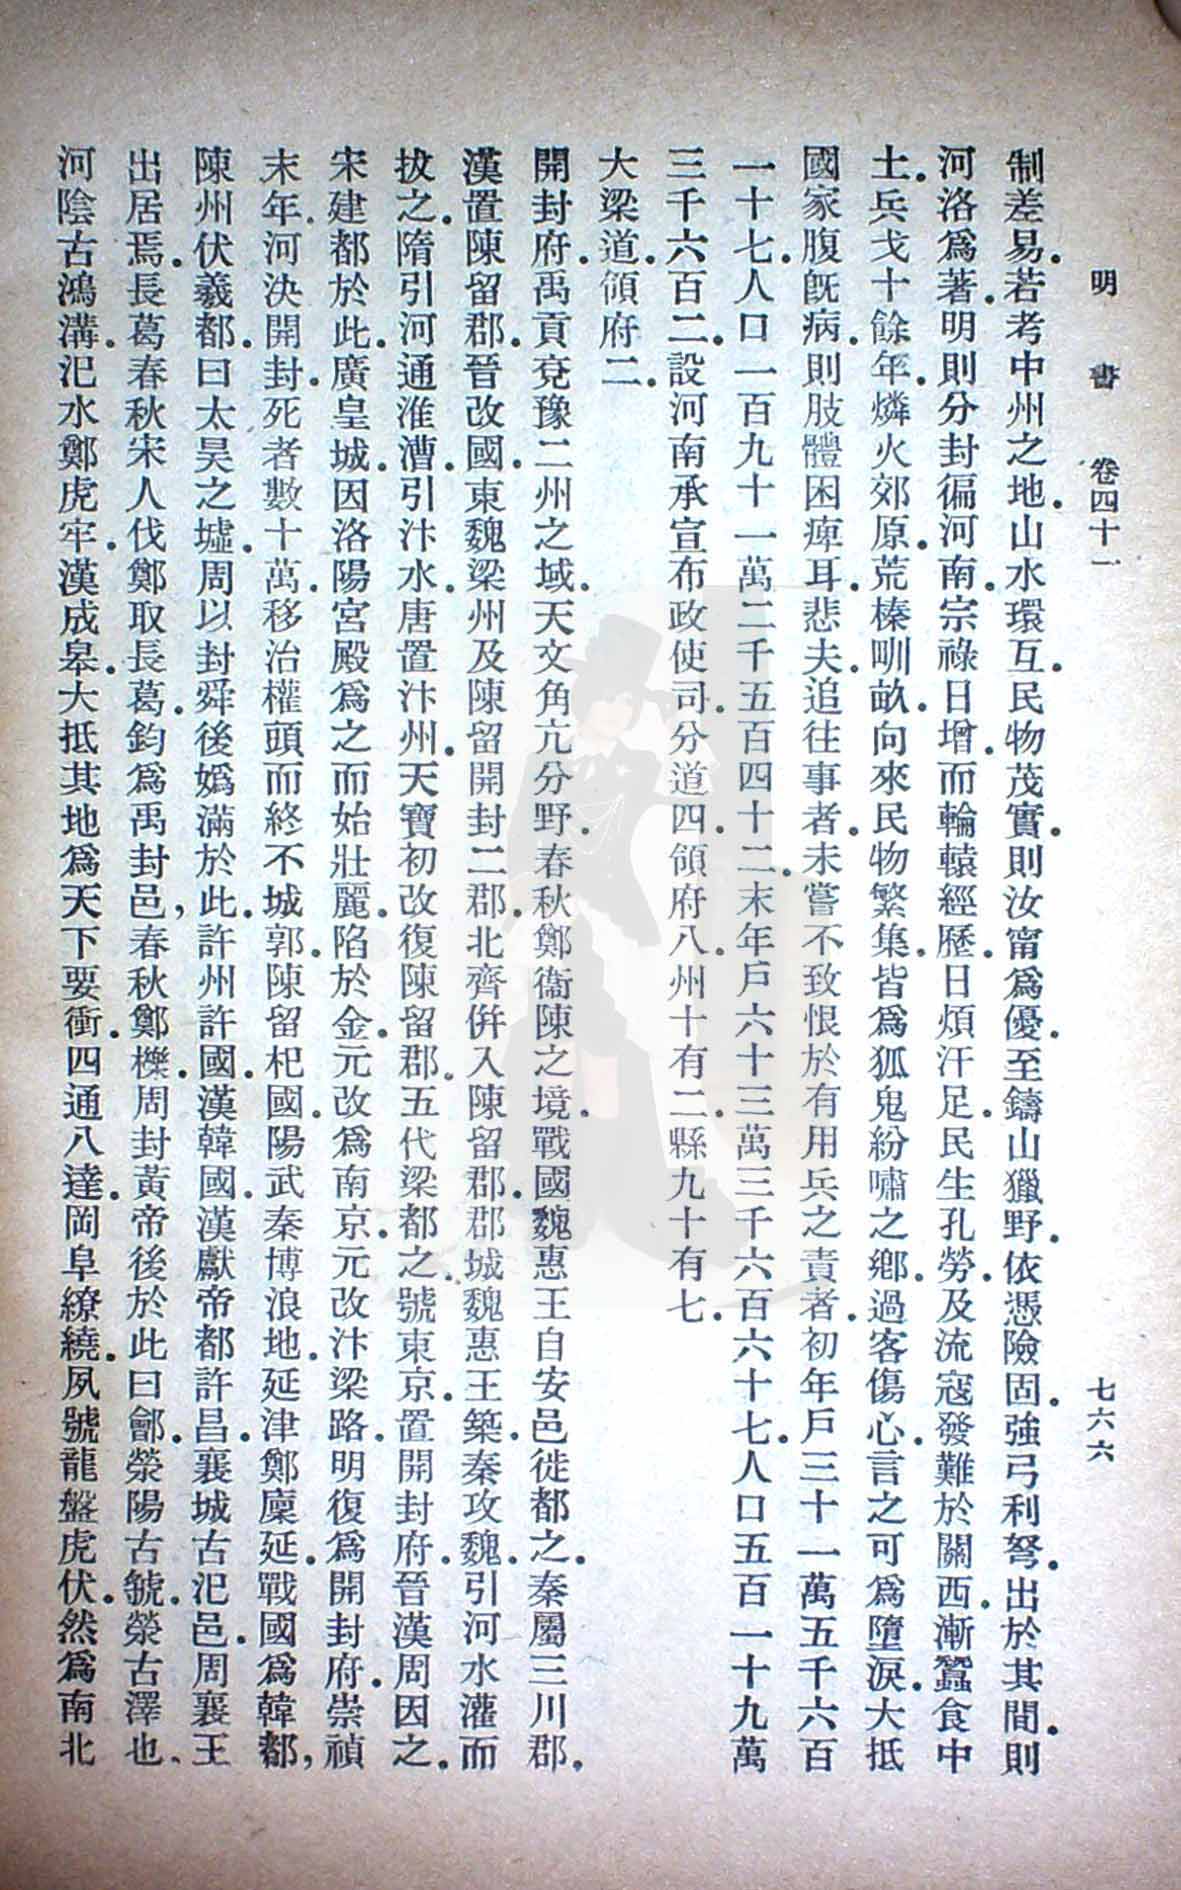 明書 卷四十一 七六六
制差易．若考中州之地．山水環互．民物茂實．則汝甯爲優．至鑄山獵野．依憑險固．強弓利弩．出於其間．則
河洛爲著．明則分封徧河南．宗祿日增．而輪轅經歷．日煩汗足．民生孔勞．及流寇發難於關西．漸蠶食中
土．兵戈十餘年．燐火郊原．荒榛甽畝．向來民物繁集．皆爲狐鬼紛嘯之鄉．過客傷心．言之可爲墮淚．大抵
國家腹既病．則肢體困痺耳．悲夫．追往事者．未嘗不致恨於有用兵之責者．初年戶三十一萬五千六百
一十七．人口一百九十一萬二千五百四十二．末年戶六十三萬三千六百六十七．人口五百一十九萬
三千六百二．設河南承宣布政使司．分道四．領府八．州十有二．縣九十有七．
大梁道．領府二．
開封府．禹貢兗豫二州之域．天文角亢分野．春秋鄭衞陳之境．戰國魏惠王自安邑徙都之．秦屬三川郡．
漢置陳留郡．晉改國．東魏梁州及陳留開封二郡．北齊併入陳留郡．郡城魏惠王築．秦攻魏．引河水灌而
拔之．隋引河通淮漕．引汴水．唐置汴州．天寶初改復陳留郡．五代梁都之．號東京．置開封府．晉漢周因之．
宋建都於此．廣皇城．因洛陽宮殿爲之．而始壯麗．陷於金．元改爲南京．元改汴梁路．明復爲開封府．崇禎
末年．河決開封．死者數十萬．移治權頭而終不城郭．陳留杞國．陽武秦博浪地．延津鄭廩延．戰國爲韓都，
陳州伏羲都．曰太昊之墟．周以封舜後嬀滿於此．許州許國．漢韓國．漢獻帝都許昌．襄城古汜邑．周襄王
出居焉．長葛春秋宋人伐鄭取長葛．鈞爲禹封邑，春秋鄭櫟．周封黃帝後於此曰鄶．滎陽古虢．滎古澤也、
河陰古鴻溝．汜水鄭虎牢．漢成皋．大抵其地爲天下要衝．四通八達．岡阜繚繞．夙號龍盤虎伏．然爲南北